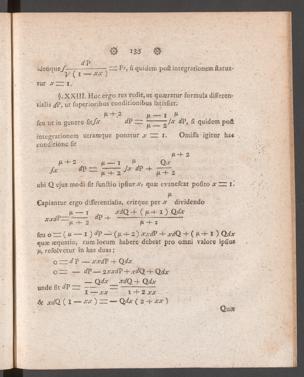 135
ideoque ∫ dP / √(1 — xx) = P, si quidem post integrationem statua-
tur x = 1.
§. XXIII. Hoc ergo rus redit, ut quæratur formula differen-
tialis dP, ut superioribus conditionibus satisfiat.
seu ut in genere sit ∫x^(μ + 2) dP = (μ — 1)/(μ — 2) ∫x^μ dP, si quidem post
integrationem utramque ponatur x = 1. Omissa igitur hac
conditione sit
∫x^(μ + 2) dP = (μ — 1)/(μ + 2) ∫x^μ dP + Qx^(μ + 2)/(μ + 2)
ubi Q ejus modi sit functio ipsius x, quæ evanescat posito x = 1.
Capiantur ergo differentialia, eritque per x^μ dividendo
xxdP = (μ — 1)/(μ + 2) dP + (xdQ + (μ + 1) Qdx)/(μ + 1)
seu 0 = (μ — 1) dP — (μ + 2) xxdP + xdQ + (μ + 1) Qdx
quæ æquatio, cum locum habere debeat pro omni valore ipsius
μ, resolvetur in has duas;
0 = dP — xxdP + Qdx
0 = — dP — 2xxdP + xdQ + Qdx
unde fit dP = — Qdx/(1 — xx) = (xdQ + Qdx)/(1 + 2 xx)
& xdQ (1 — xx) = — Qdx (2 + xx)
Quæ